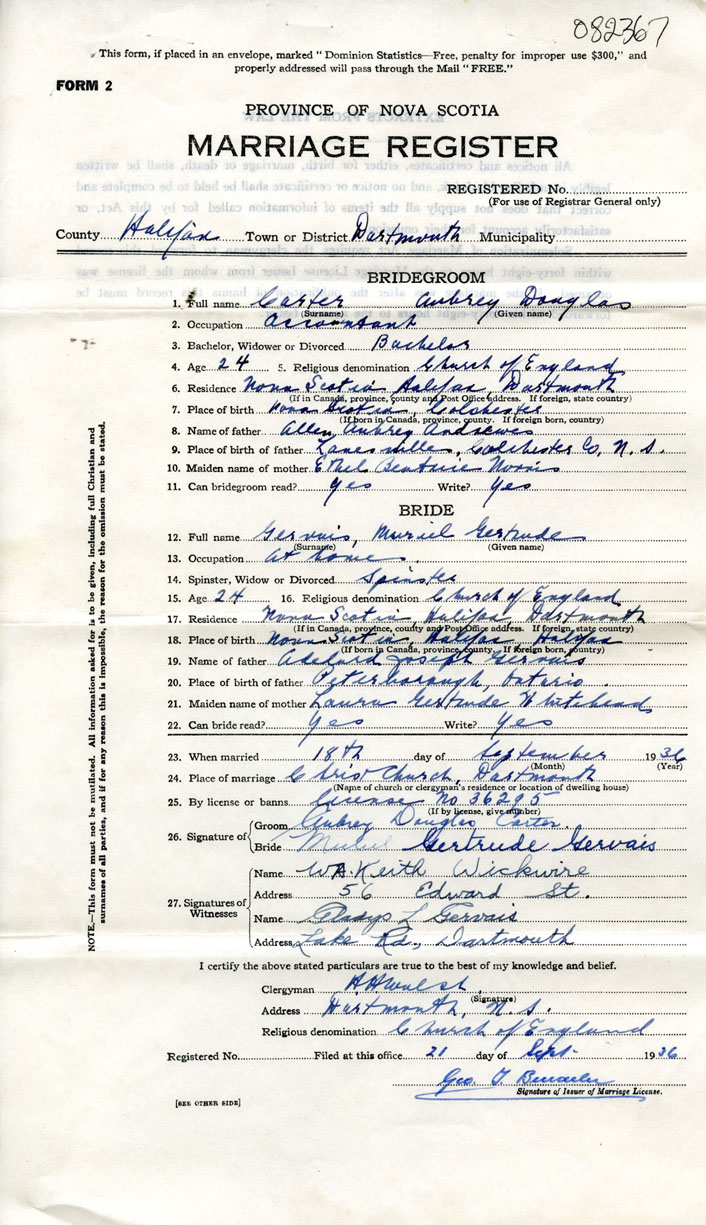 082367
This form, if placed in an envelope, marked "Dominion Statistics—Free, penalty for improper use $300," and
properly addressed will pass through the Mail "FREE."
FORM 2
PROVINCE OF NOVA SCOTIA
MARRIAGE REGISTER
REGISTERED No.
(For use of Registrar General only)
County Halifax Town or District Dartmouth Municipality
BRIDEGROOM
1. Full name Carter Aubrey Douglas
(Surname) (Given name)
2. Occupation Accountant
3. Bachelor, Widower or Divorced Bachelor
4. Age 24 5. Religious denomination Church of England
6. Residence Nova Scotia Halifax, Dartmouth
(If in Canada, province, county and Post Office address. If foreign, state country)
7. Place of birth Nova Scotia, Colchester
(If born in Canada, province, county. If foreign born, country)
8. Name of father Allen Aubrey Andrews
9. Place of birth of father Colchester Co, N.S.
10. Maiden name of mother Ethel Beatrice Norris
11. Can bridegroom read? yes Write? yes
BRIDE
12. Full name Gervais, Muriel Gertrude
(Surname) (Given name)
13. Occupation At home
14. Spinster, Widow or Divorced Spinster
15. Age 24 16. Religious denomination Church of England
17. Residence Nova Scotia, Halifax, Dartmouth
(If in Canada, province, county and Post Office address. If foreign, state country)
18. Place of birth Nova Scotia, Halifax, Halifax
(If born in Canada, province, county. If foreign born, country)
19. Name of father Adelard Joseph Gervais
20. Place of birth of father Peterborough, Ontario
21. Maiden name of mother Laura Gertrude Whitehead
22. Can bride read? yes Write? yes
23. When married 18th day of September 1936
(Month) (Year)
24. Place of marriage Christ Church, Dartmouth
(Name of church or clergyman's residence or location of dwelling house)
25. By license or banns License No 36295
(If by license, give number)
26. Signature of
Groom Aubrey Douglas Carter.
Bride Muriel Gertrude Gervais
27. Signatures of Witnesses
Name W.A. Keith Wickwire
Address 56 Edward St.
Name Gladys L Gervais
Address Lake Rd., Dartmouth
I certify the above stated particulars are true to the best of my knowledge and belief.
Clergyman
(Signature)
Address Dartmouth, N.S.
Religious denomination Church of England
Registered No. Filed at this office 21 day of Sept. 1936
Geo. T.
Signature of Issuer of Marriage License.
[SEE OTHER SIDE]
NOTE.—This form must not be mutilated. All information asked for is to be given, including full Christian and
surnames of all parties, and if for any reason this is impossible, the reason for the omission must be stated.